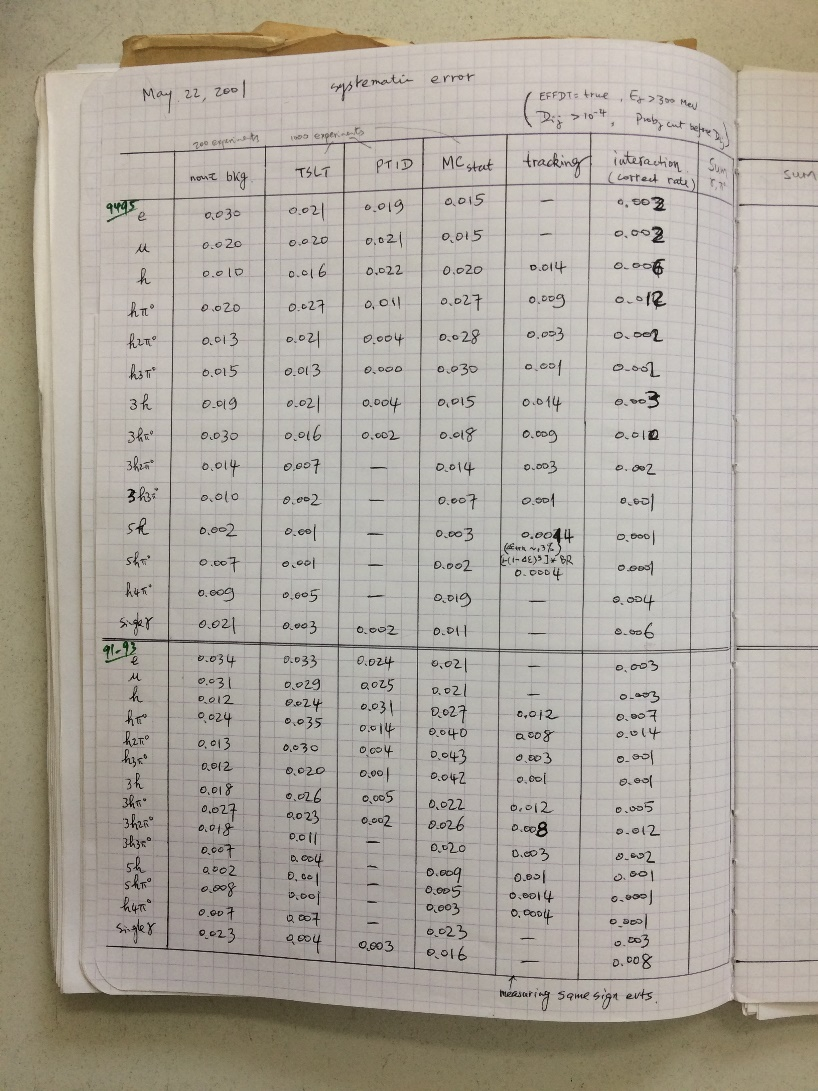 May. 22, 2001 systematic error
( EFFDT = true , Eγ > 300 MeV
Dij > 10⁻⁴ , Probγ cut before Dij )
200 experiments 1000 experiments
nonτ bkg. TSLT PTID MC stat tracking interaction (correct rate) Sum SUM
9495
e 0.030 0.021 0.019 0.015 — 0.003
μ 0.020 0.020 0.021 0.015 — 0.002
h 0.010 0.016 0.022 0.020 0.014 0.006
hπ° 0.020 0.027 0.011 0.027 0.009 0.012
h2π° 0.013 0.021 0.004 0.028 0.003 0.002
h3π° 0.015 0.013 0.000 0.030 0.001 0.002
3h 0.019 0.021 0.004 0.015 0.014 0.003
3hπ° 0.030 0.016 0.002 0.018 0.009 0.010
3h2π° 0.014 0.007 — 0.014 0.003 0.002
3h3π° 0.010 0.002 — 0.007 0.001 0.001
5h 0.002 0.001 — 0.003 0.0014 0.0001
5hπ° 0.007 0.001 — 0.002 0.0004 0.0001
h4π° 0.009 0.005 — 0.019 — 0.004
single γ 0.021 0.003 0.002 0.011 — 0.006
91-93
e 0.034 0.033 0.024 0.021 — 0.003
μ 0.031 0.029 0.025 0.021 — 0.003
h 0.012 0.024 0.031 0.027 0.012 0.007
hπ° 0.024 0.035 0.014 0.040 0.008 0.014
h2π° 0.013 0.030 0.004 0.043 0.003 0.001
h3π° 0.012 0.020 0.001 0.042 0.001 0.001
3h 0.018 0.026 0.005 0.022 0.012 0.005
3hπ° 0.027 0.023 0.002 0.026 0.008 0.012
3h2π° 0.018 0.011 — 0.020 0.003 0.002
3h3π° 0.007 0.004 — 0.009 0.001 0.001
5h 0.002 0.001 — 0.005 0.0014 0.0001
5hπ° 0.008 0.001 — 0.003 0.0004 0.0001
h4π° 0.007 0.007 — 0.023 — 0.003
single γ 0.023 0.004 0.003 0.016 — 0.008
↑
measuring same sign evts.